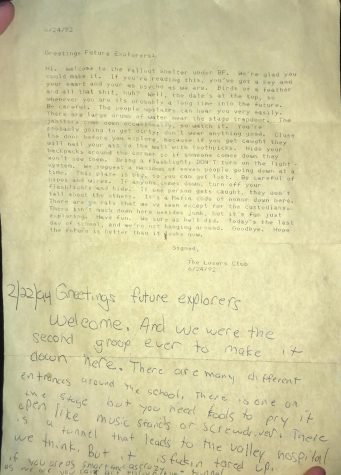 6/24/92
Greetings Future Explorers,
Hi. Welcome to the fallout shelter under BF. We're glad you
could make it. If you're reading this, you've got a key and
your smart and your as psycho as we are. Birds of a feather
and all that shit, huh? Well, the date's at the top, so
whenever you are its probably a long time into the future.
Be careful. The people upstairs can hear you very easily.
There are large drums of water near the stage trapdoor. The
janitors come down occasionally, so watch it. You're
probably going to get dirty; don't wear anything good. Close
the door before you explore, because if you get caught they
will nail your ass to the wall with toothpicks. Hide your
backpacks around the corner so if someone comes down they
won't see them. Bring a flashlight, DON'T turn on the light
system. We suggest a maximum of seven people going down at a
time. This place is big, so you can get lost. Be careful of
pipes and wires. If anyone comes down, turn off your
flashlights and hide. If one person gets caught, they don't
tell about the others. It's a Mafia code of honor down here.
There are no rats that we've seen except for the custodians.
There isn't much down here besides junk, but it's fun just
exploring. Have fun. We sure as hell did. Today's the last
day of school, and we're not hanging around. Goodbye. Hope
the future is better than it looks now.
Signed,
The Losers Club
6/24/92
2/22/94 Greetings future explorers
Welcome. And we were the
second group ever to make it
down here. There are many different
entrances around the school. There is one on
the stage but you need tools to pry it
open like music stands or screwdriver. There
is a tunnel that leads to the valley hospital
we think, but it is taped up.
if you are as smart and as crazy
as we are you